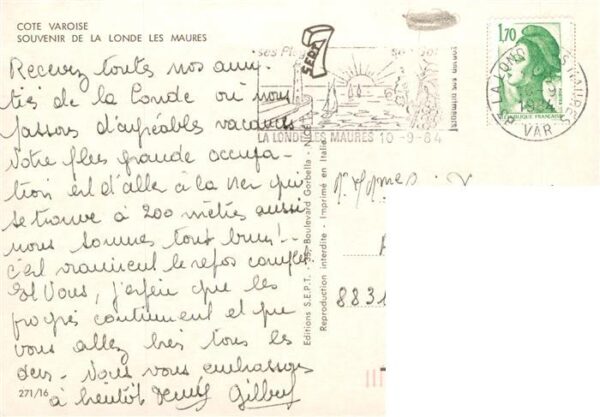 COTE VAROISE
SOUVENIR DE LA LONDE LES MAURES
Recevez toutes nos ami-
tiés de la Londe où nous
passons d'agréables vacances
Notre plus grande occupa-
tion est d'aller à la mer qui
se trouve à 200 mètres aussi
nous sommes tout bruns!..
c'est vraiment le repos complet
Et Vous, j'espère que les
progrès continuent et que
vous allez bien tous les
deux. Nous vous embrassons
à bientôt Gilbert
271/16
Editions S.E.P.T. - 35, Boulevard Gorbella - NICE
Reproduction interdite - Imprimé en Italie
SEPT 7
LA LONDE LES MAURES 10-9-84
1,70
REPUBLIQUE FRANÇAISE
LA LONDE LES MAURES
1984
VAR
8831